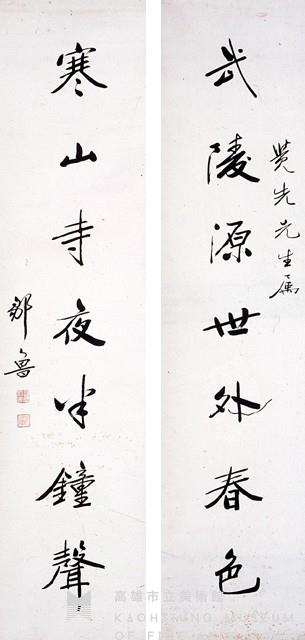 覺先先生属
武陵源世外春色
寒山寺夜半鐘聲
鄒魯
高雄市立美術館
KAOHSIUNG MUSEUM
OF FINE